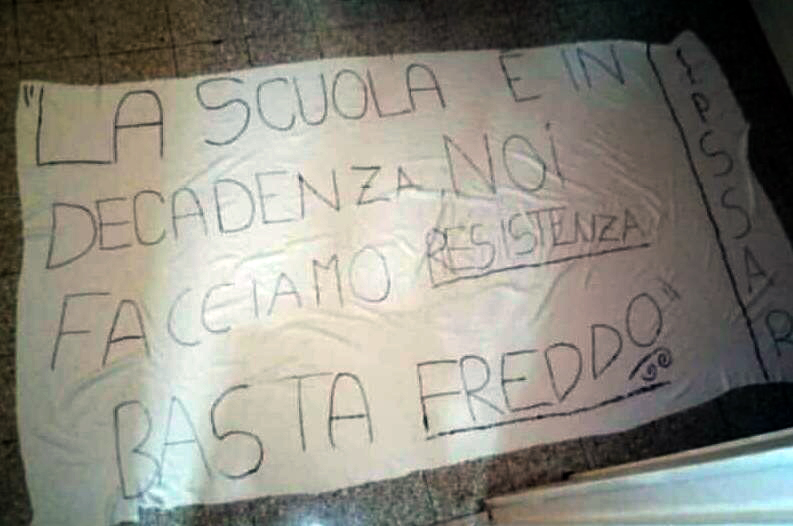 "LA SCUOLA E IN
DECADENZA, NOI
FACCIAMO RESISTENZA
BASTA FREDDO"